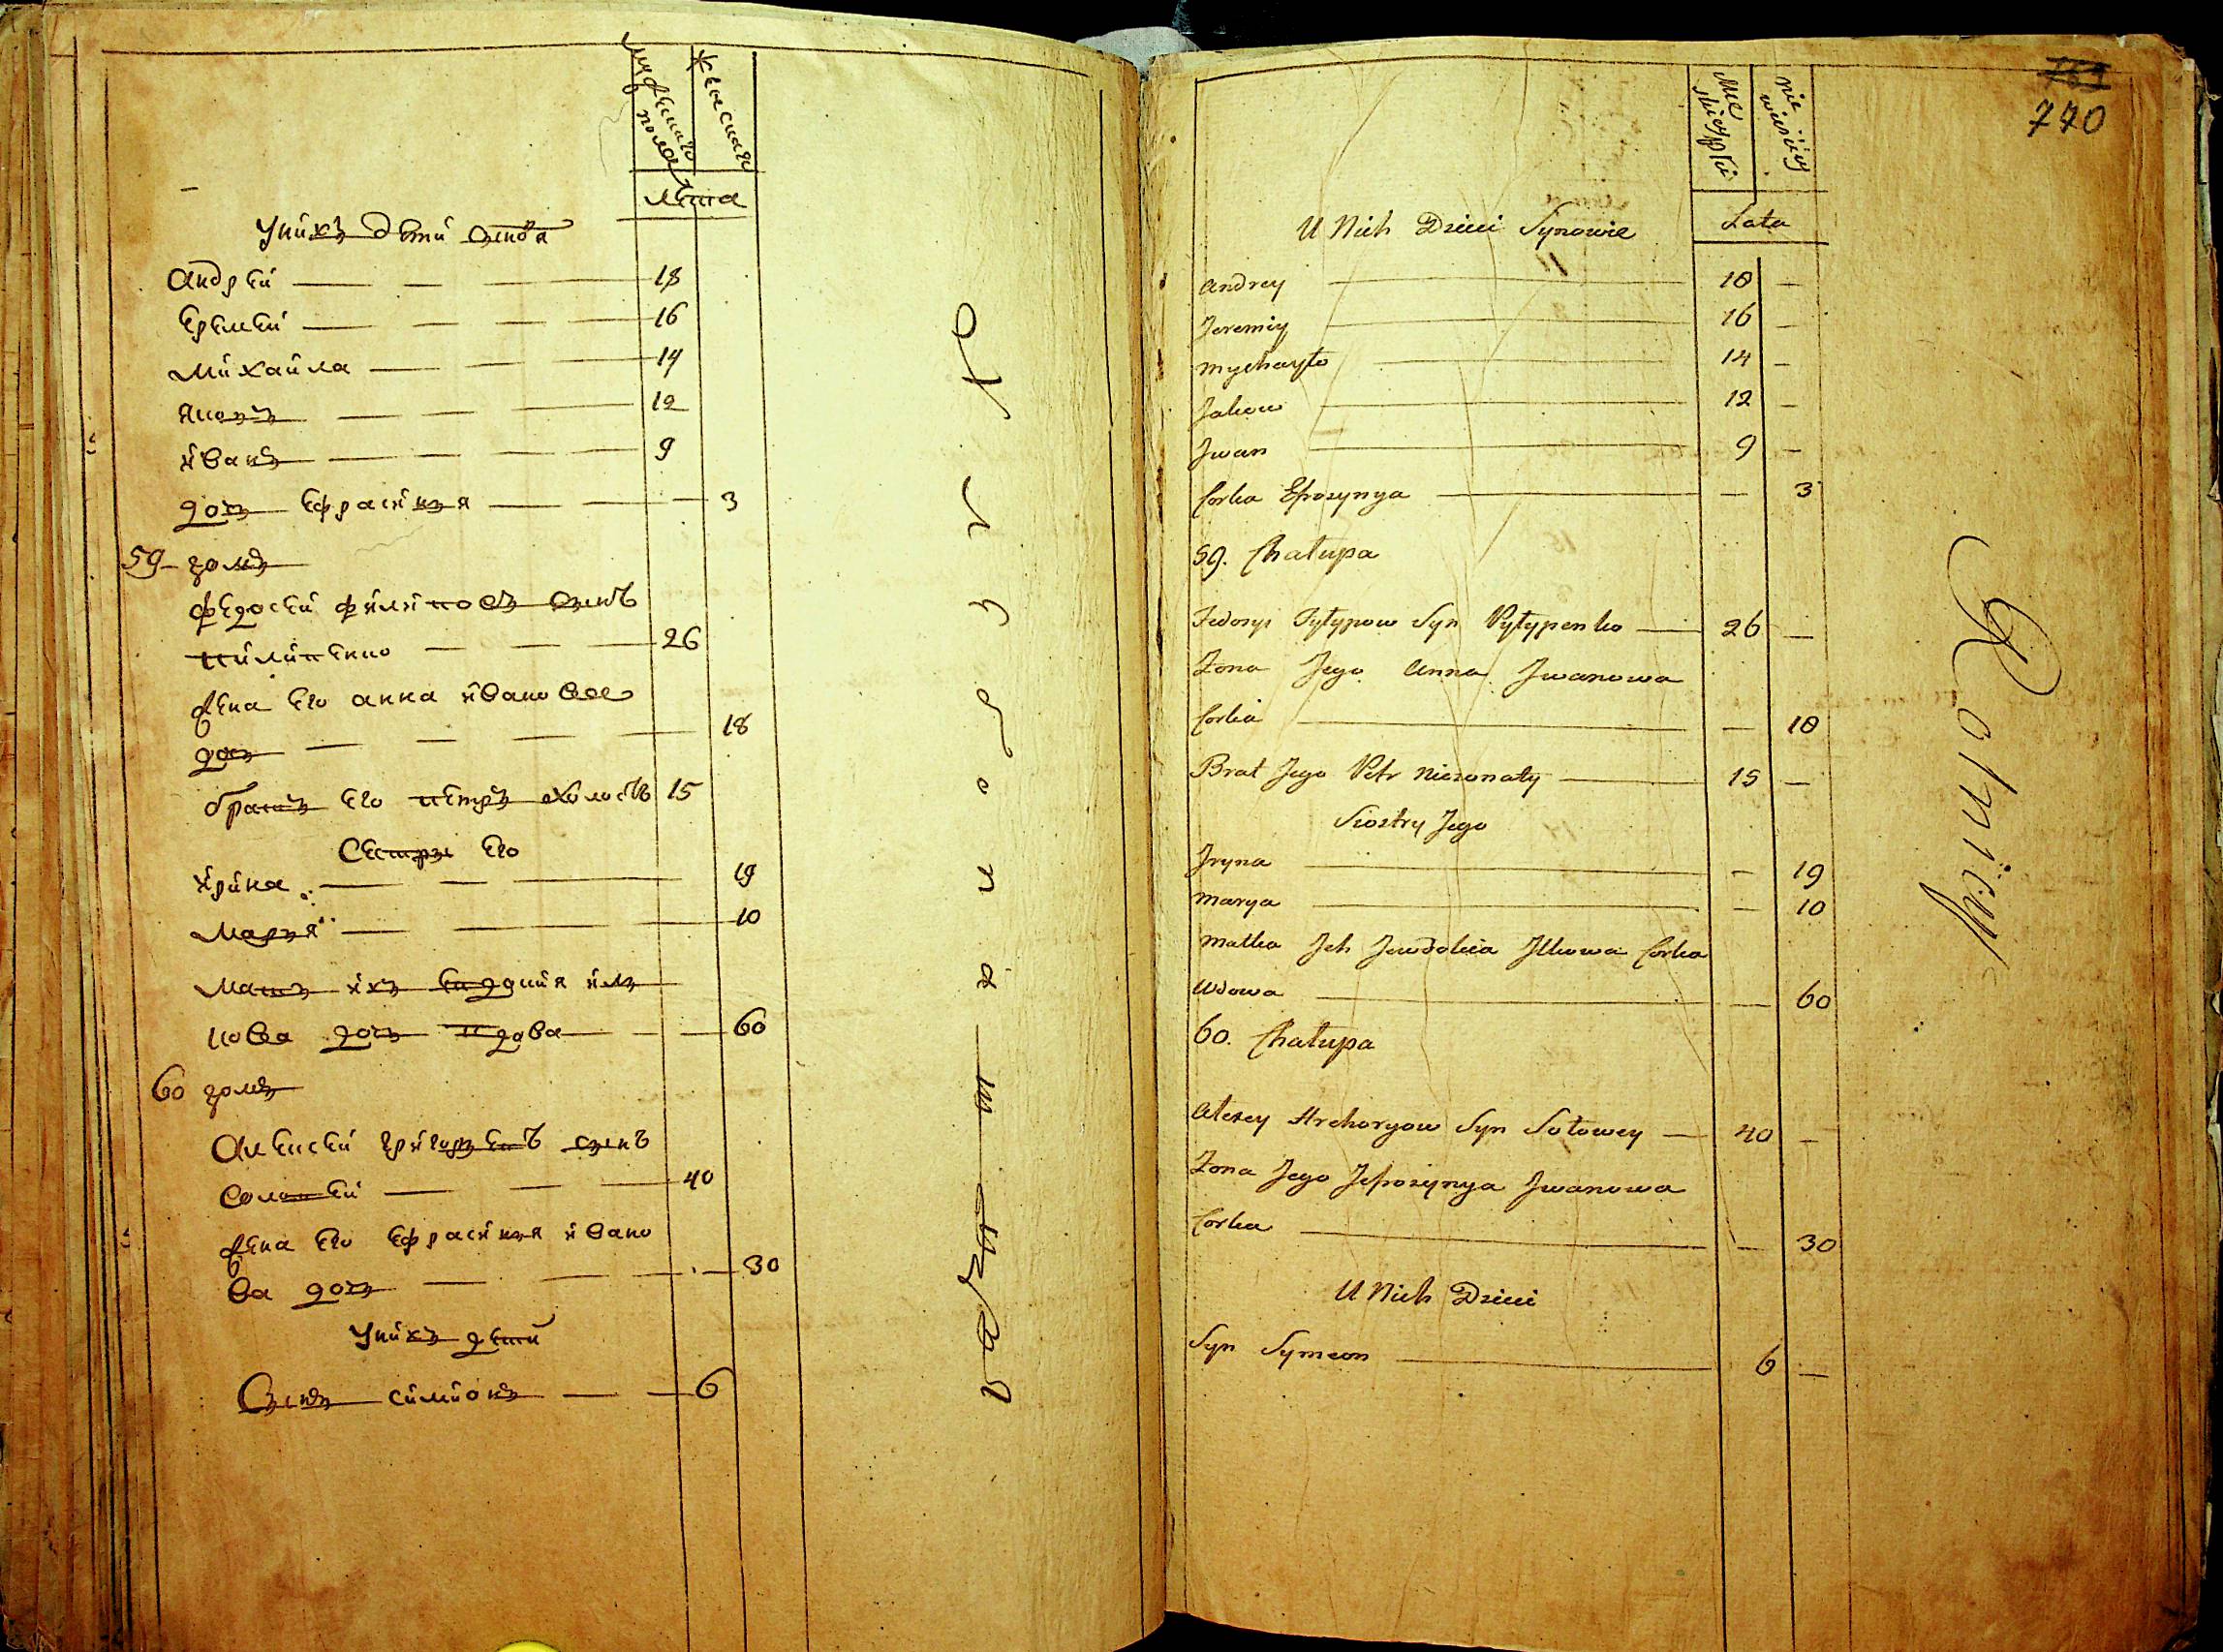 Мужеска полу
Женска
Лѣта
У нихъ дѣти сынова
Андрѣй — 18
Еремѣй — 16
Михайла — 14
Яковъ — 12
Иванъ — 9
дочъ Ефрасиния — 3
59 домъ
Федосѣй Филиповъ сынъ
Пилипенко — 26
Жена его Анна Иванова
дочъ — 18
братъ его Петръ холостъ 15
Сестры его
Ирина — 19
Мария — 10
Мать ихъ Евдокия Иль
кова дочъ вдова — 60
60 домъ
Алексѣй Григориевъ сынъ
Соловей — 40
Жена его Ефрасиния Ивано
ва дочъ — 30
У нихъ дѣти
Сынъ Симионъ — 6
769
770
Męskiey płci
Lata
U Nich Dzieci Synowie
Andrey — 18 —
Jeremiy — 16 —
Mychayło — 14 —
Jakow — 12 —
Jwan — 9 —
Corka Efrosynya — — 3
59. Chałupa
Fedosyi Fyłypow Syn Pyłypenko — 26 —
Zona Jego Anna Jwanowa
Corka — — 18
Brat Jego Petr Niezonaty — 15 —
Siostry Jego
Jryna — — 19
Marya — — 10
Matka Jch Jewdokia Jlkowa Corka
Wdowa — — 60
60. Chałupa
Alexey Hrehoryow Syn Sołowey — 40 —
Zona Jego Jefrosynya Jwanowa
Corka — — 30
U Nich Dzieci
Syn Symeon — 6 —
Rolnicy